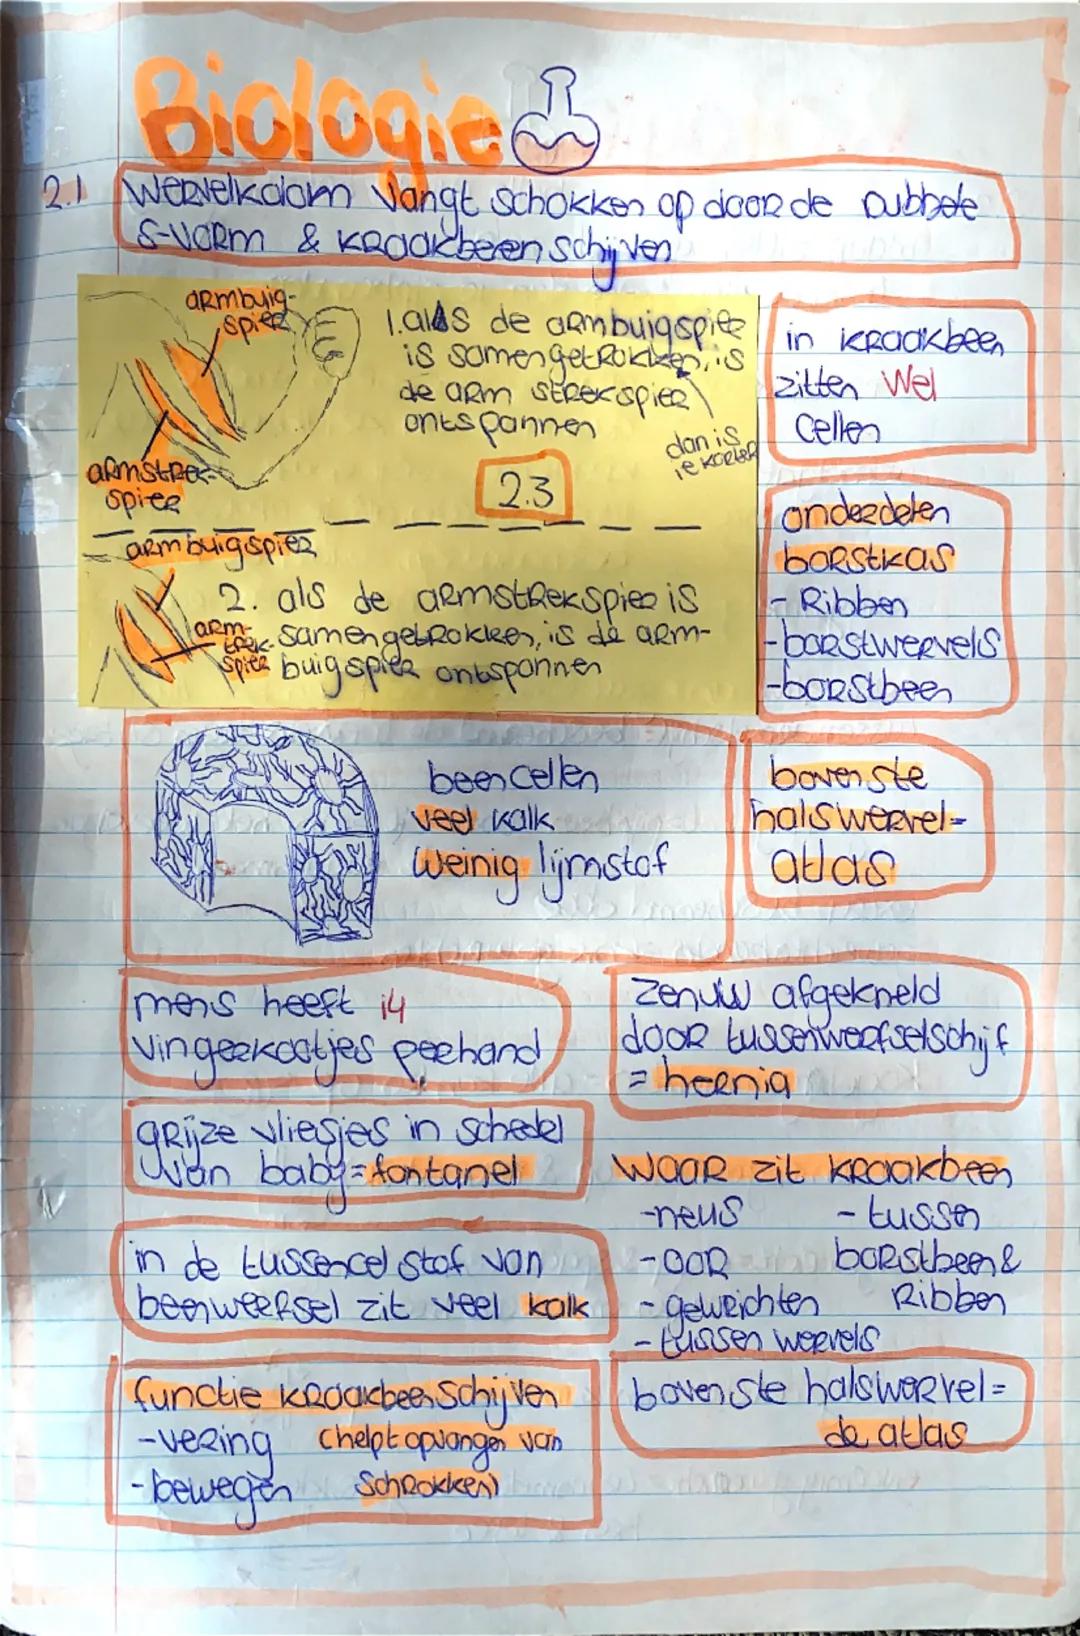 Biologie
2.1 Wervelkolom vangt schokken op door de Dubbele
S-vorm & kraakbeen schijven
armbuig-
spier
armstrek-
spier
1. als de armbuigspier
is samengetrokken, is
de arm strekspier
ontspannen
dan is
ie korter
2.3
armbuigspier
arm-
trek-
spier
2. als de armstrekspier is
samengetrokken, is de arm-
buigspier ontspannen
in kraakbeen
zitten wel
cellen
onderdelen
borstkas
- Ribben
- borstwervels
- borstbeen
beencellen
veel kalk
weinig lijmstof
bovenste
halswervel=
atlas
mens heeft 14
vingerkootjes per hand
zenuw afgekneld
door tussenwerfselschijf
= hernia
grijze vliesjes in schedel
van baby = fontanel
in de tussencel stof van
beenweefsel zit veel kalk
waar zit kraakbeen
- neus
- oor
- gewrichten
- tussen wervels
- tussen
borstbeen &
Ribben
functie kraakbeenschijven
- vering (helpt opvangen van
- bewegen schrokken)
bovenste halswervel=
de atlas